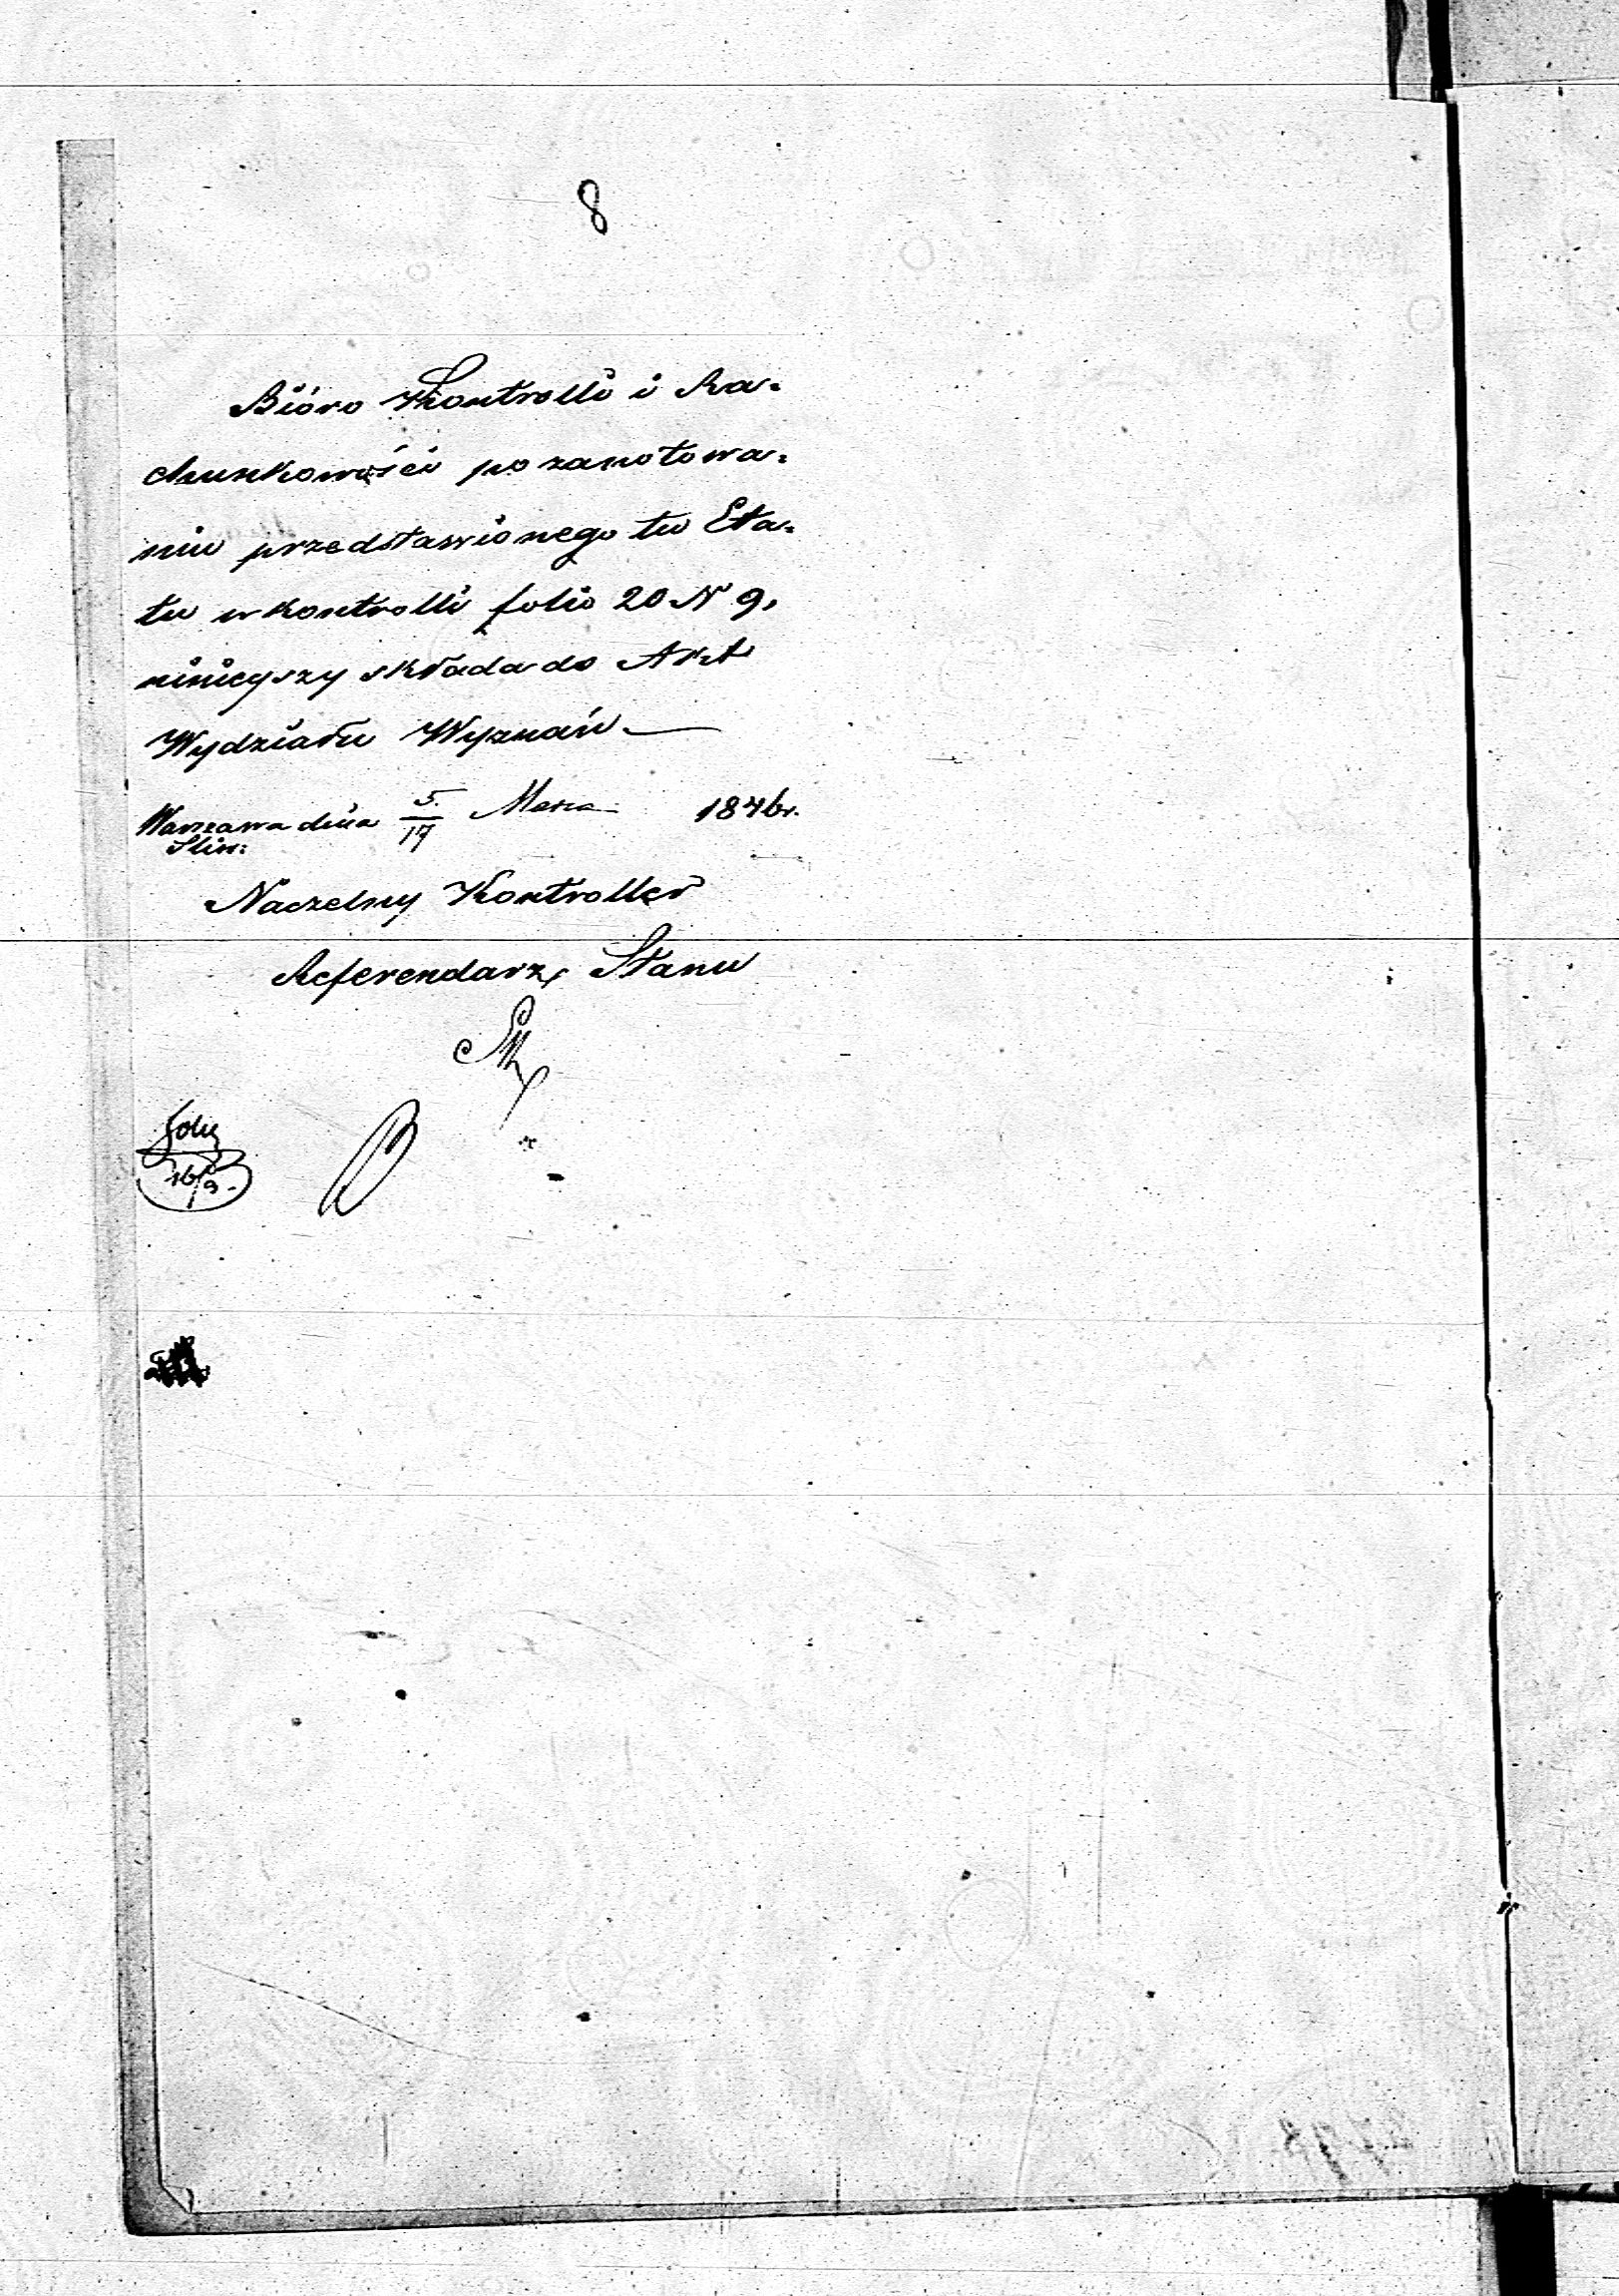 8
Bióro Kontrolli i Ra=
chunkowości po zanotowa=
niu przedstawionego tu Eta=
tu w kontrolli folio 20 N 9,
niniejszy składa do Akt
Wydziału Wyznań
Warszawa dnia 5/17 Marca 1846 r.
Naczelny Kontroller
Referendarz Stanu